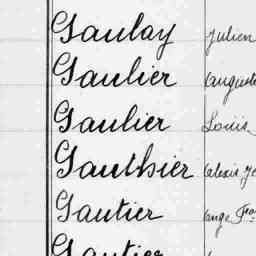 Gaulay Julien
Gaulier Auguste
Gaulier Louis
Gauthier Alexis Je
Gautier Ange Fra
Gautier